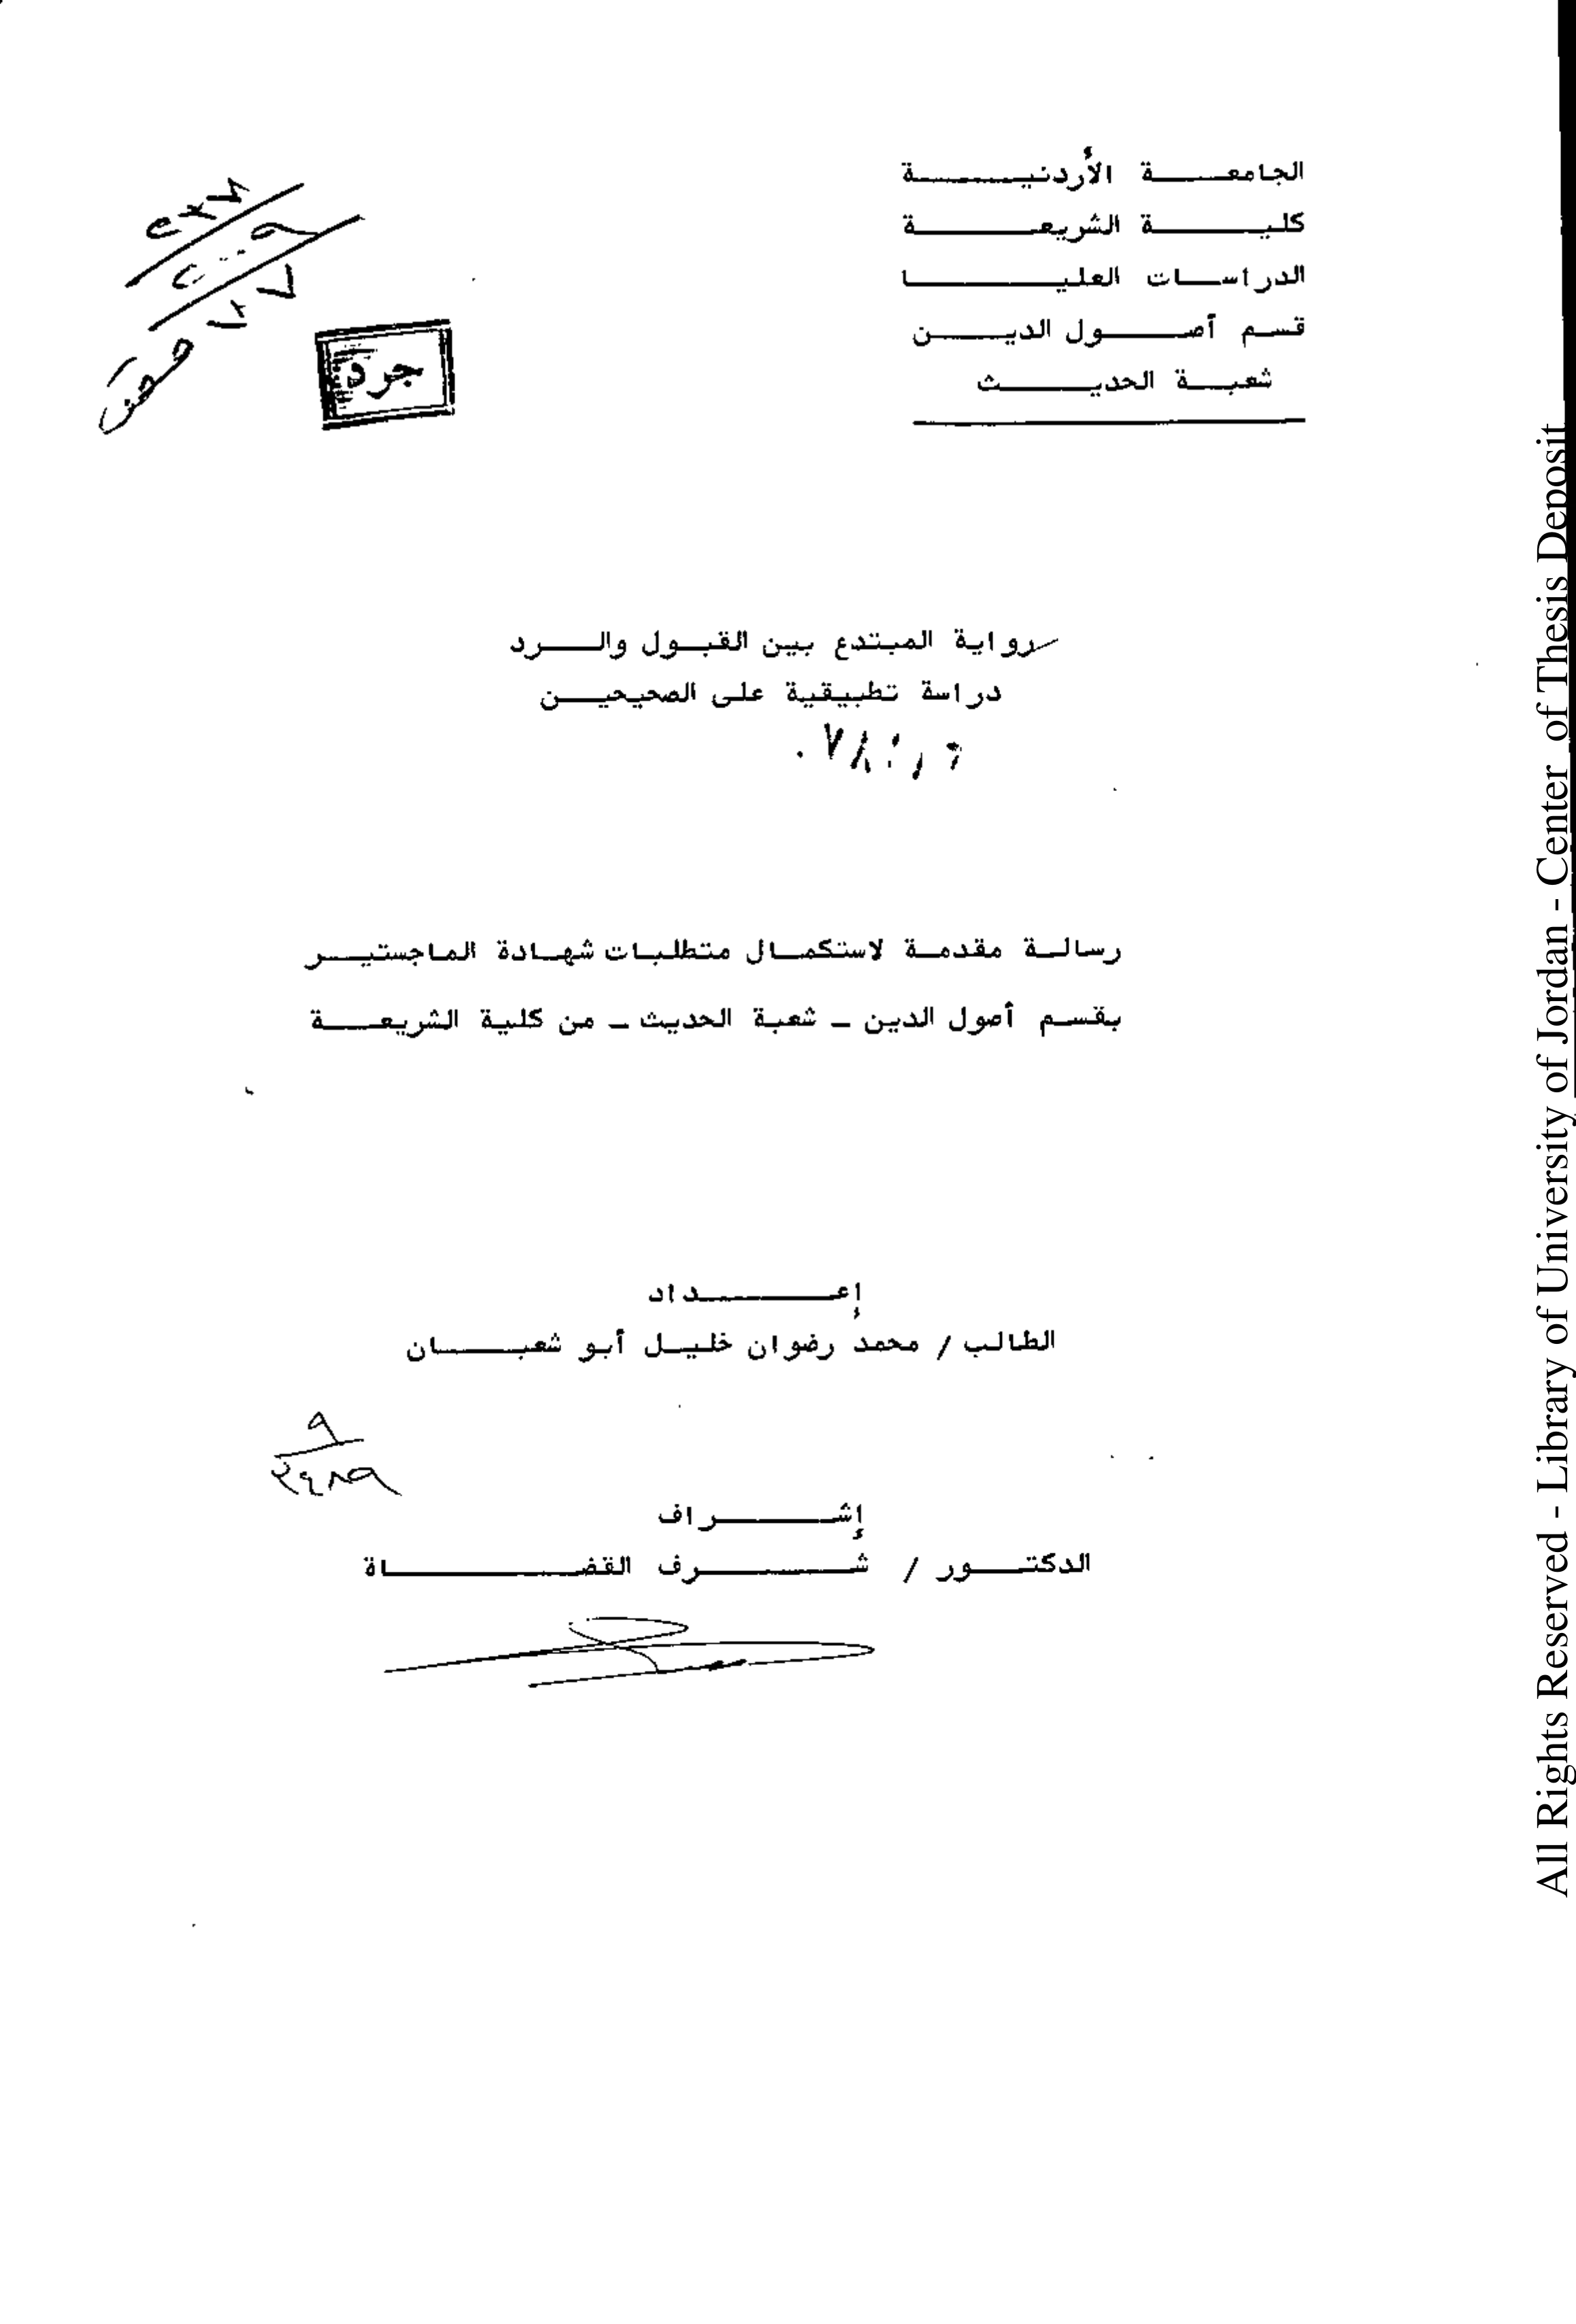 الجامعة الأردنية
كلية الشريعة
الدراسات العليا
قسم أصول الدين
شعبة الحديث
جرد
رواية المبتدع بين القبول والرد
دراسة تطبيقية على الصحيحين
رسالة مقدمة لاستكمال متطلبات شهادة الماجستير
بقسم أصول الدين - شعبة الحديث - من كلية الشريعة
إعداد
الطالب / محمد رضوان خليل أبو شعبان
٩
٢٤٨٩
إشراف
الدكتور / شرف القضاة
All Rights Reserved - Library of University of Jordan - Center of Thesis Deposit